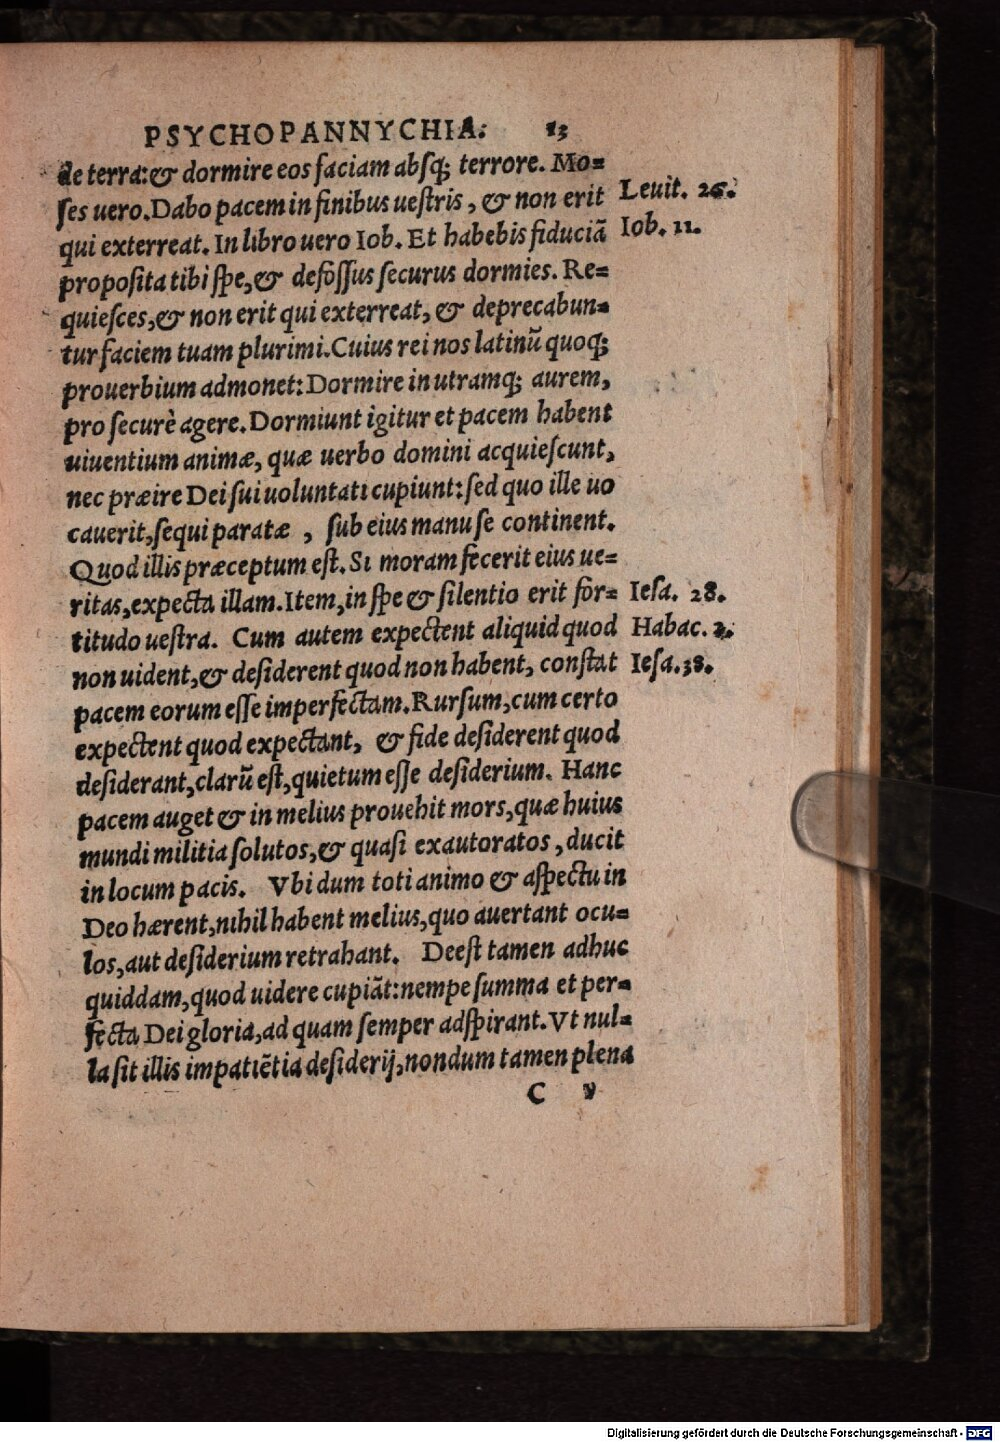 PSYCHOPANNYCHIA. 13
de terra:& dormire eos faciam absq; terrore. Mo=
ses uero. Dabo pacem in finibus uestris, & non erit
Leuit. 26.
qui exterreat. In libro uero Iob. Et habebis fiduciā
Iob. 11.
proposita tibi spe, & defossus securus dormies. Re=
quiesces, & non erit qui exterreat, & deprecabun=
tur faciem tuam plurimi. Cuius rei nos latinū quoq;
prouerbium admonet: Dormire in utramq; aurem,
pro securè agere. Dormiunt igitur et pacem habent
uiuentium animæ, quæ uerbo domini acquiescunt,
nec præire Dei sui uoluntati cupiunt: sed quo ille uo
cauerit, sequi paratæ , sub eius manu se continent.
Quod illis præceptum est. Si moram fecerit eius ue=
ritas, expecta illam. Item, in spe & silentio erit for=
Iesa. 28.
titudo uestra. Cum autem expectent aliquid quod
Habac. 2.
non uident, & desiderent quod non habent, constat
Iesa. 38.
pacem eorum esse imperfectam. Rursum, cum certo
expectent quod expectant, & fide desiderent quod
desiderant, clarū est, quietum esse desiderium. Hanc
pacem auget & in melius prouehit mors, quæ huius
mundi militia solutos, & quasi exautoratos, ducit
in locum pacis. Vbi dum toti animo & aspectu in
Deo hærent, nihil habent melius, quo auertant ocu=
los, aut desiderium retrahant. Deest tamen adhuc
quiddam, quod uidere cupiāt: nempe summa et per=
fecta Dei gloria, ad quam semper adspirant. Vt nul=
la sit illis impatiētia desiderij, nondum tamen plena
C v
Digitalisierung gefördert durch die Deutsche Forschungsgemeinschaft - DFG